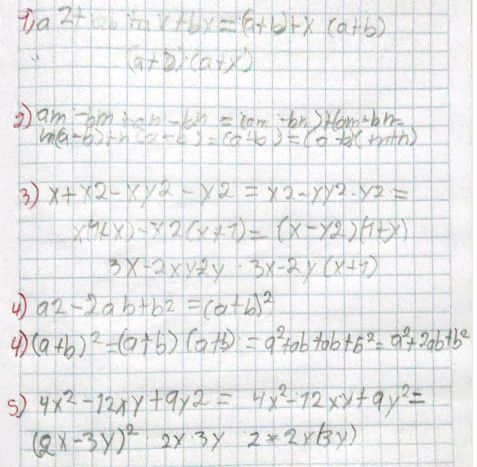 1) a2+ab+ax+bx=(a+b)+x(a+b)
(a+b)(a+x)
2) am-bm+an-bn=(am-bn)+(am-bn=
m(a-b)+n(a-b)=(a-b)=(a-b)(m+n)
3) x+x2-xy2-y2=x2-xy2-y2=
x(1+x)-y2(x+1)=(x-y2)(1+x)
3x-2xy+2y 3x-2y(x+1)
4) a2-2ab+b2=(a+b)²
4) (a+b)²=(a+b)(a+b)=a²+ab+ab+b²=a²+2ab+b²
5) 4x²-12xy+9y2= 4x²-12xy+9y²=
(2x-3y)² 2x 3y 2*2x(3y)